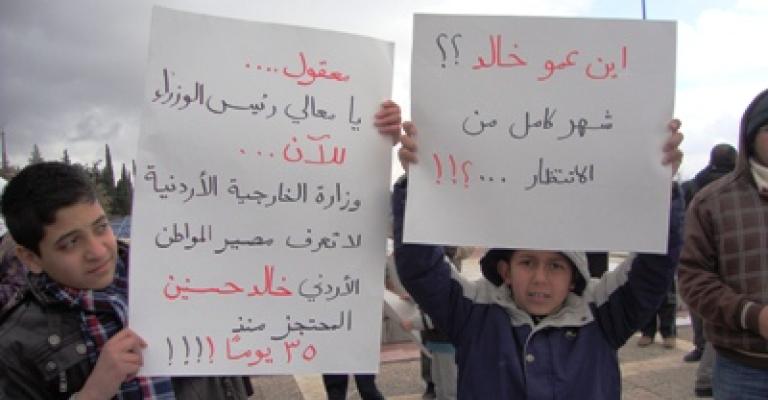 اين عمو خالد ؟؟
شهر كامل من
الانتظار ...؟!!
معقول ....
يا معالي رئيس الوزراء
للآن ...
وزارة الخارجية الأردنية
لا تعرف مصير المواطن
الأردني خالد حسنين
المحتجز منذ
٣٥ يومًا !!!!